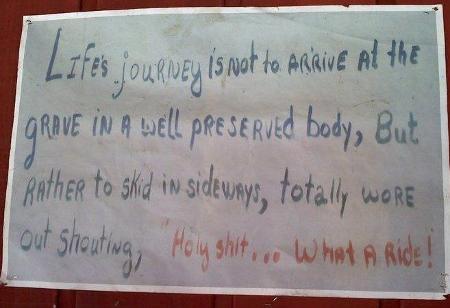 Life's journey is not to arrive at the
grave in a well preserved body, But
rather to skid in sideways, totally wore
out shouting, "Holy shit... What a ride!